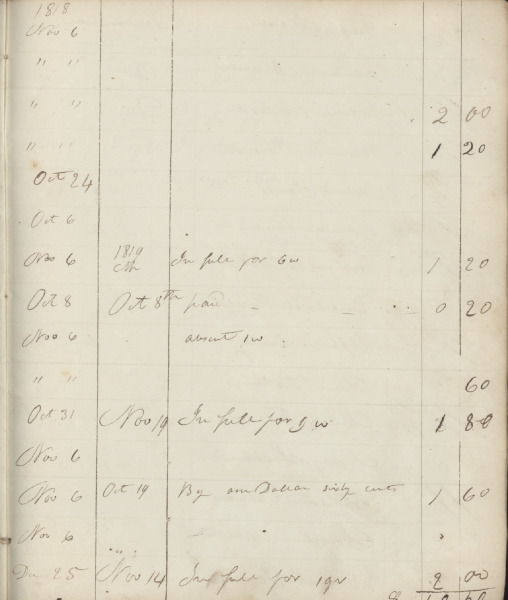 1818
Nov 6
" "
" " 2 00
" " 1 20
Oct 24
Oct 6
Nov 6 1819 In full for 6w 1 20
Oct 8 Oct 8th paid 0 20
Nov 6 absent 1w
" " 60
Oct 31 Nov 19 In full for 9 w 1 80
Nov 6
Nov 6 Oct 19 By one Dollar sixty cents 1 60
Nov 6 "
Dec 25 Nov 14 In full for 1 qr 2 00